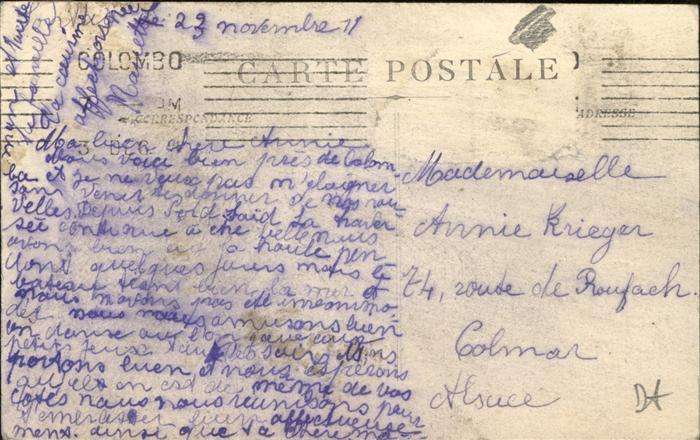 le 23 novembre 11
COLOMBO
CARTE POSTALE
CORRESPONDANCE
ADRESSE
Ma bien chère Annie
Nous voici bien près de Colom-
bo et je ne veux pas m'éloigner
sans venir te donner de nos nou-
velles. Depuis Port Saïd la traver
sée continue à être belle nous
avons bien eu la houle pen
dant quelques jours mais le
bateau tient bien la mer et
nous n'avons pas été
nous nous amusons bien
on danse au bon
petits jeux tous les jours. Nous
portons bien et nous espérons
qu'il en est de même de vos
côtés nous nous réunissons pour
t'embrasser bien affectueuse-
ment ainsi que ta chère ma-
man et
ta cousine
affectionnée
Mademoiselle
Annie Krieger
74, route de Roufach
Colmar
Alsace